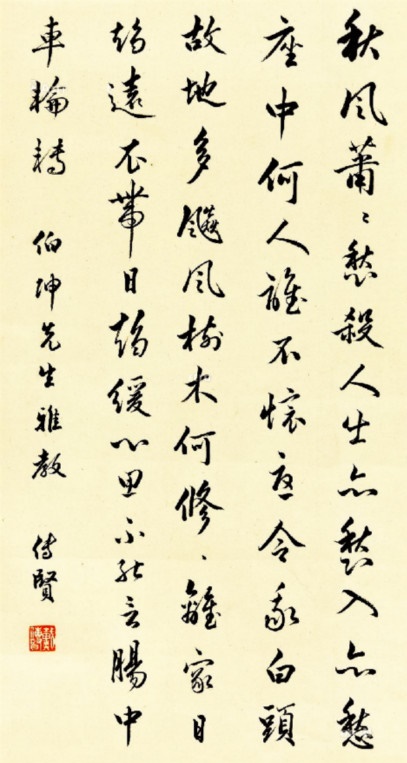 秋風蕭〻愁殺人出亦愁入亦愁
座中何人誰不懷憂令我白頭
故地多飈風樹木何修〻離家日
趨遠衣帶日趨緩心思不能言腸中
車輪轉 伯坤先生雅教 傳賢